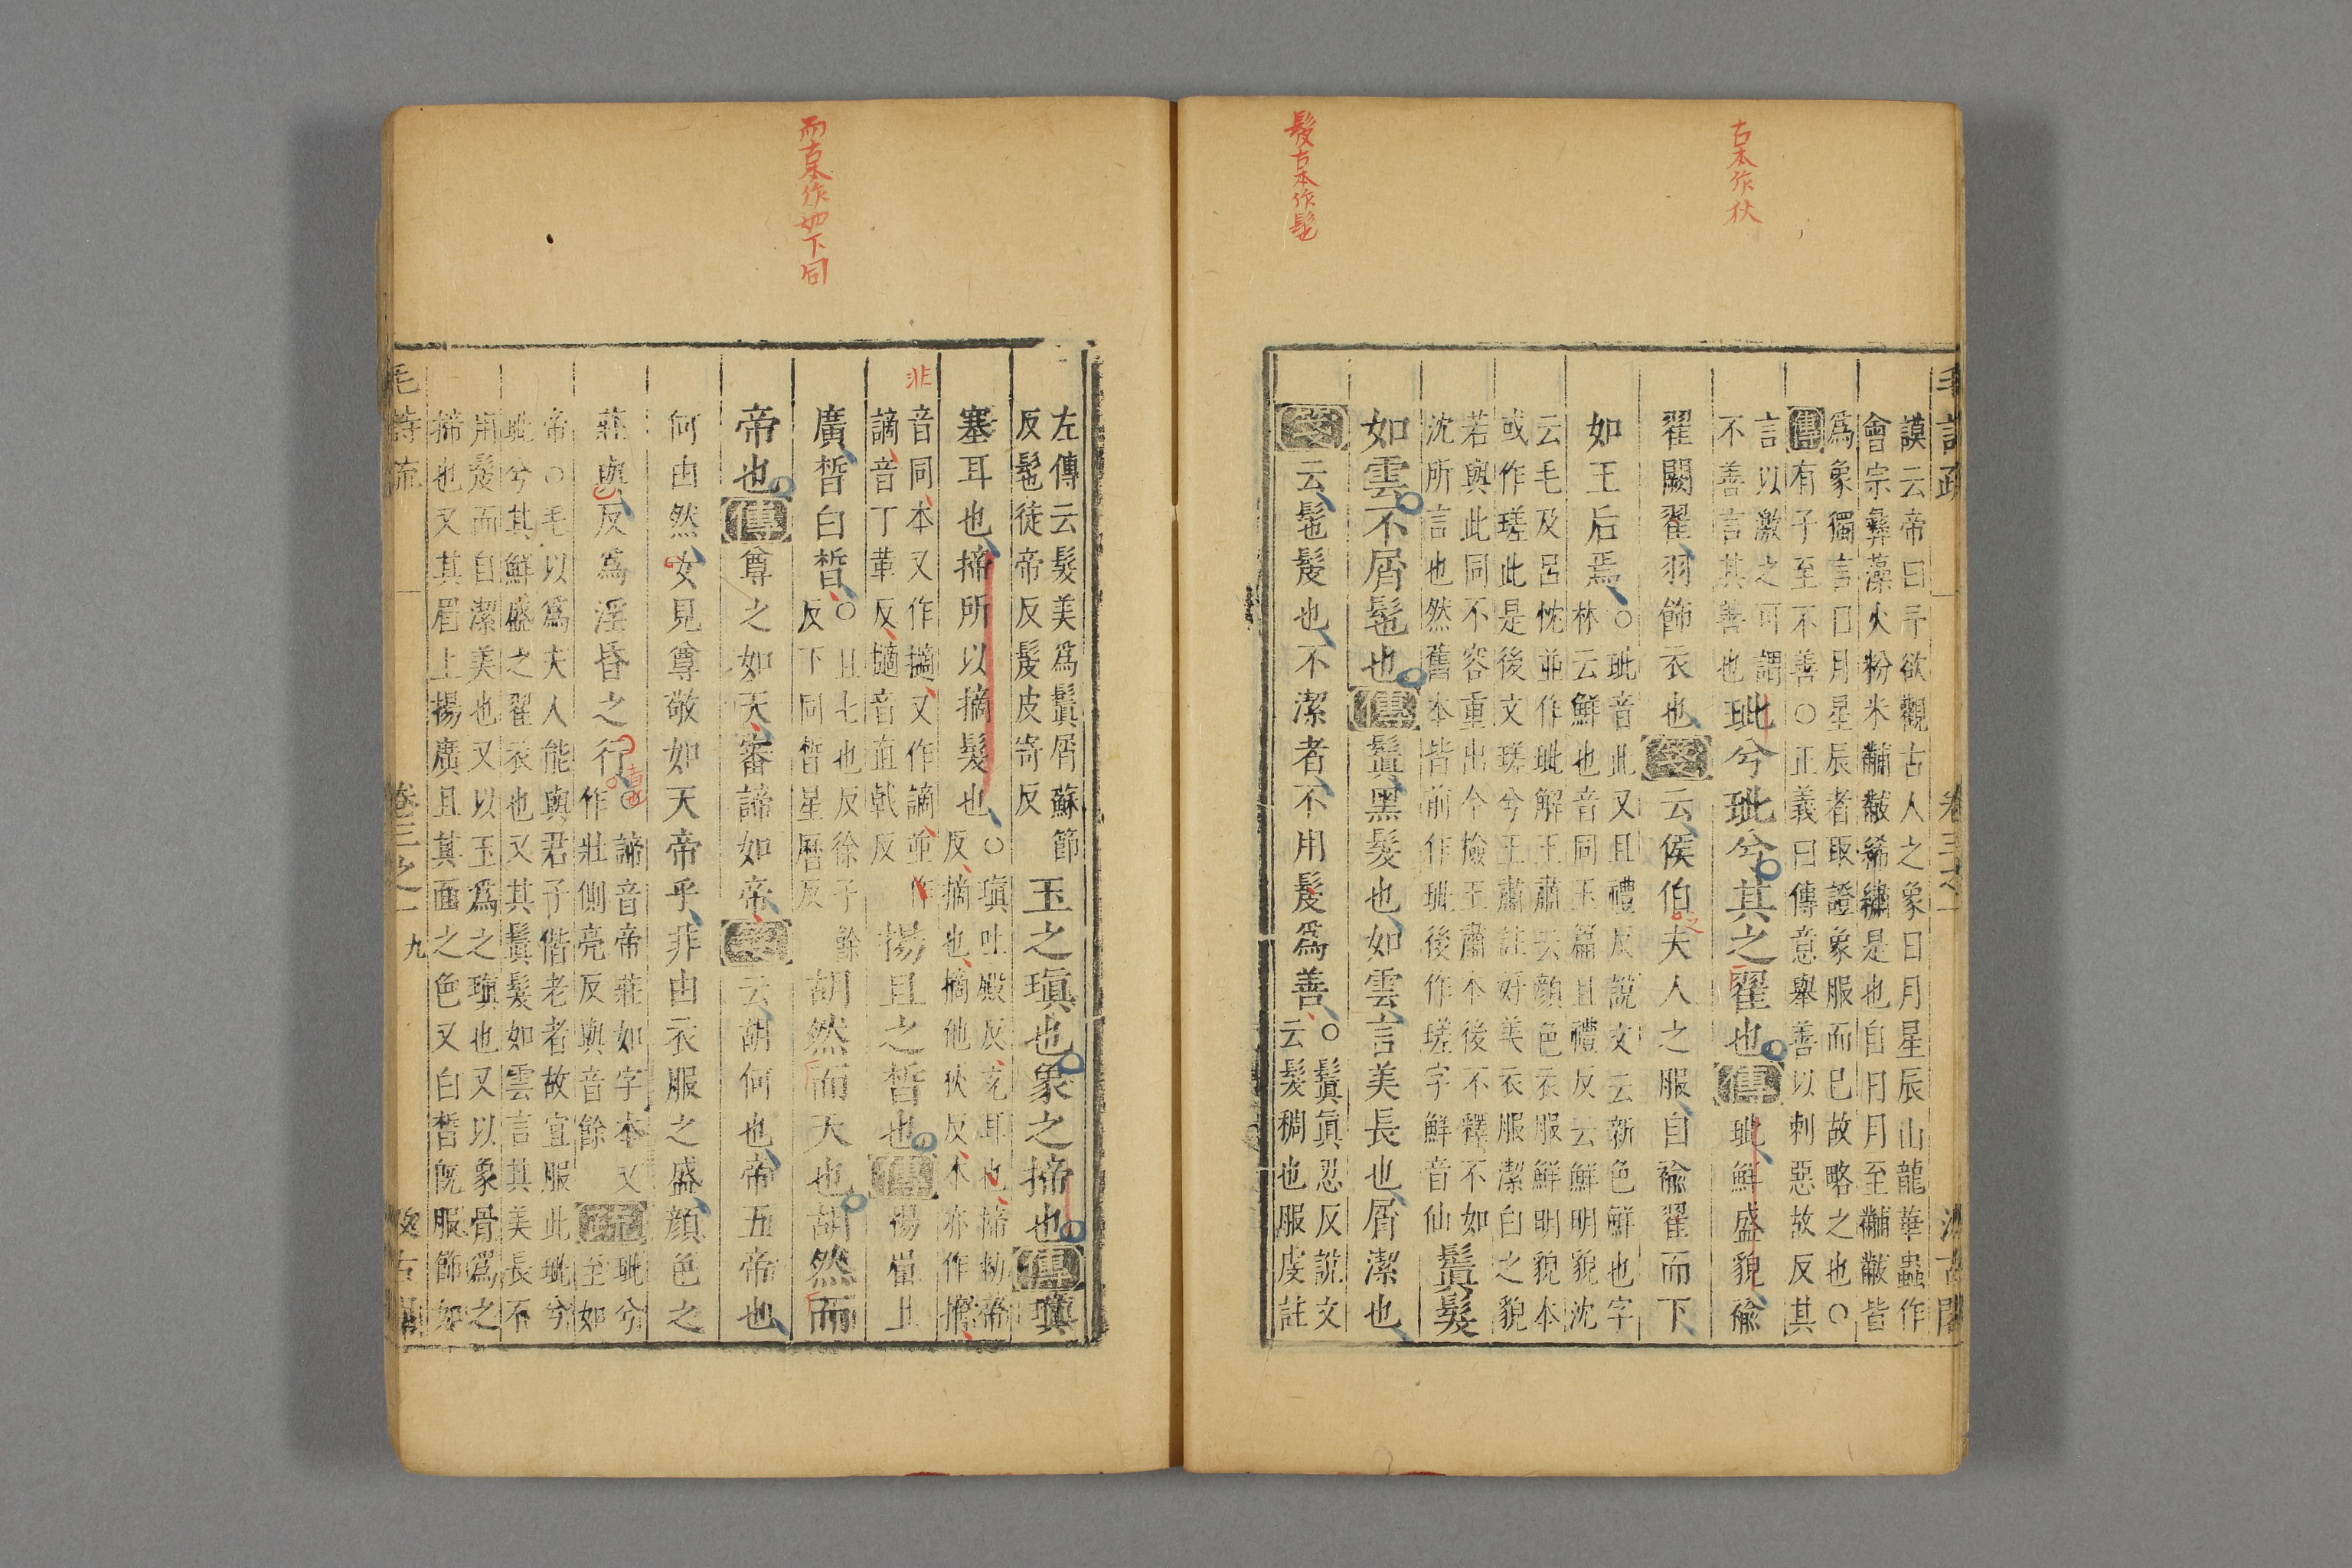 古本作狄
髲古本作髢
毛詩疏 卷三之一 汲古閣
謨云帝曰予欲觀古人之象日月星辰山龍華蟲作
會宗彝藻火粉米黼黻絺繡是也自日月至黼黻皆
爲象獨言日月星辰者取證象服而已故略之也○
傳有子至不善○正義曰傳意舉善以刺惡故反其
言以激之可謂
不善言其善也
玼兮玼兮其之翟也傳玼鮮盛貌褕
翟闕翟羽飾衣也箋云侯伯夫人之服自褕翟而下
之
如王后焉○
玼音此又且禮反說文云新色鮮也字
林云鮮也音同玉篇且禮反云鮮明貌沈
云毛及呂忱並作玼解王肅云顔色衣服鮮明貌本
或作瑳此是後文瑳兮王肅註好美衣服潔白之貌
若與此同不容重出今檢王肅本後不釋不如
沈所言也然舊本皆前作玼後作瑳字鮮音仙
鬒髮
如雲不屑髢也傳鬒黑髮也如雲言美長也屑潔也
箋云髢髲也不潔者不用髲爲善○
鬒真忍反說文
云髮稠也服虔註
而古本作如下同
左傳云髮美爲鬒屑蘇節
反髢徒帝反髲皮寄反
玉之瑱也象之揥也傳瑱
塞耳也揥所以摘髮也○
瑱吐殿反充耳也揥勑帝
反摘也摘他狄反本亦作擿
非
音同本又作擿又作謫並作
謫音丁革反擿音直戟反
揚且之皙也傳揚眉上
廣皙白皙○
且七也反徐子餘
反下同皙星曆反
胡然而天也胡然而
帝也傳尊之如天審諦如帝箋云胡何也帝五帝也
何由然女見尊敬如天帝乎非由衣服之盛顔色之
莊與反爲淫昏之行○
諦音帝莊如字本又
作壯側亮反與音餘
疏
玼兮
至如
帝○毛以爲夫人能與君子偕老者故宜服此玼兮
玼兮其鮮盛之翟衣也又其鬒髮如雲言其美長不
用髲而自潔美也又以玉爲之瑱也又以象骨爲之
揥也又其眉上揚廣且其面之色又白皙旣服飾如
毛詩疏 卷三之一 九 汲古閣